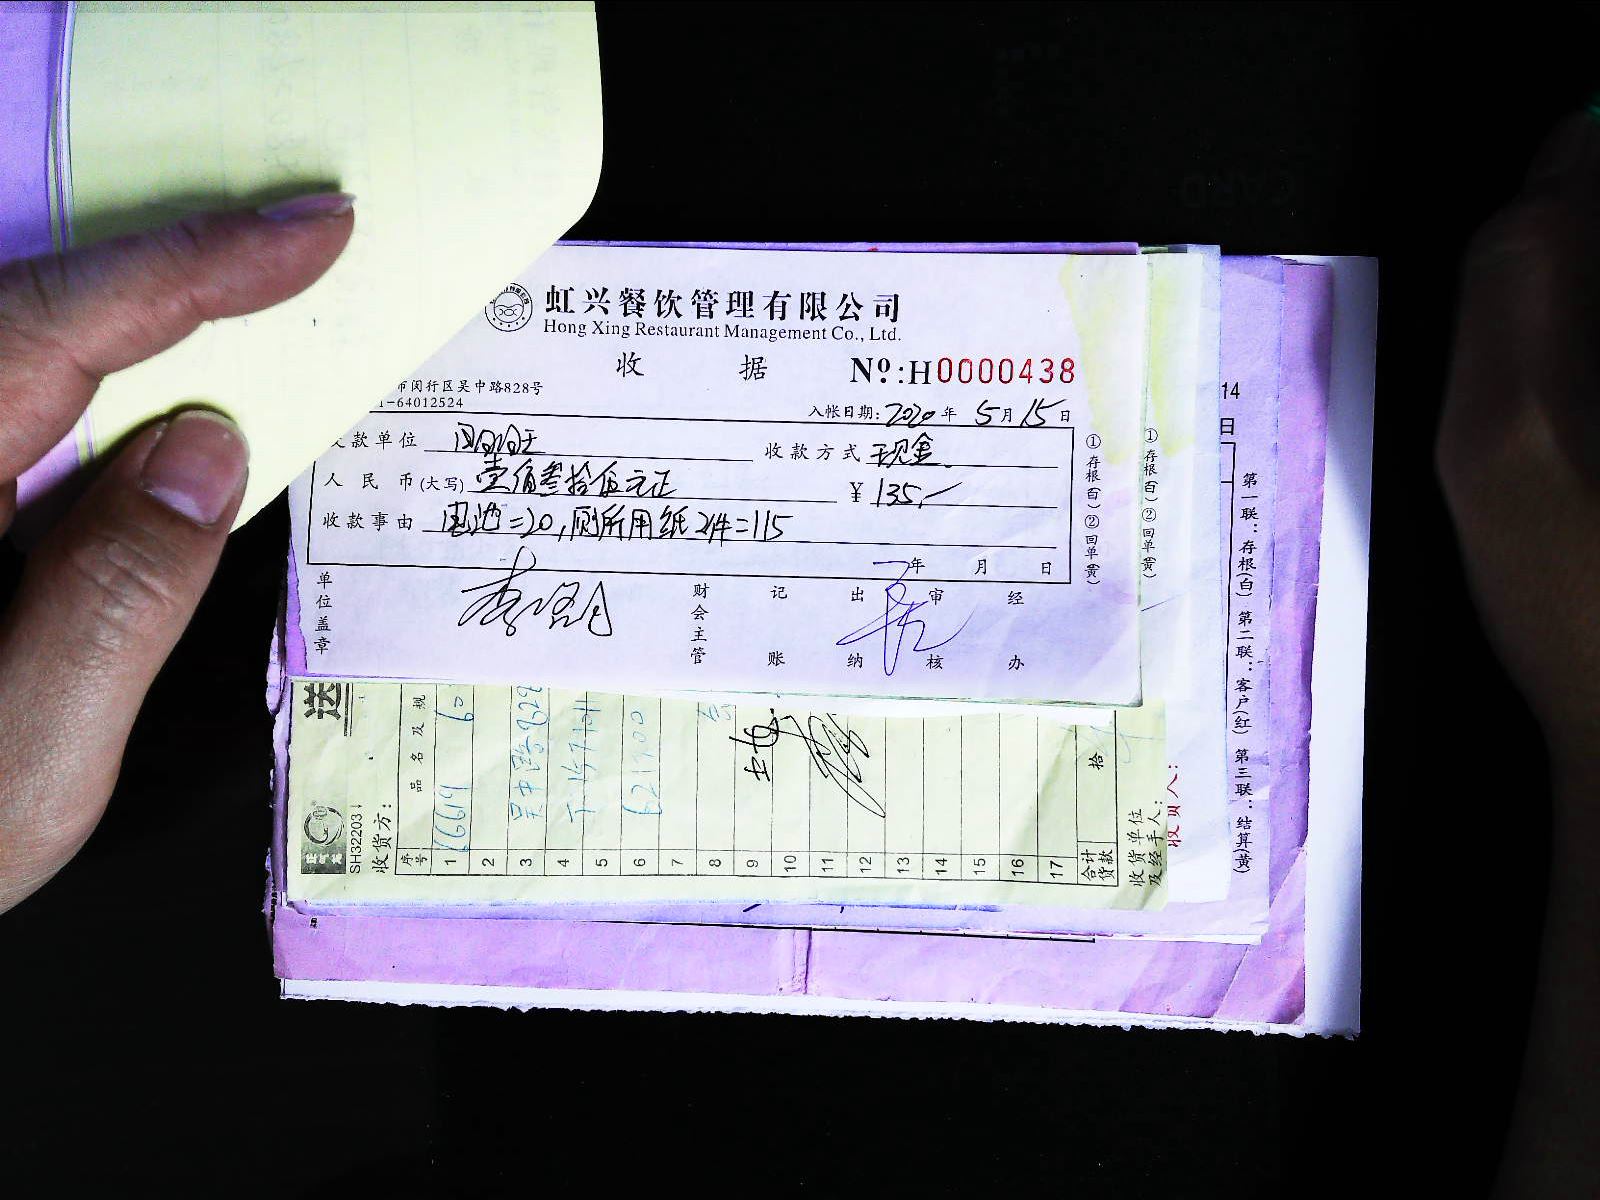 虹兴餐饮管理有限公司
Hong Xing Restaurant Management Co., Ltd.
收 据 Nº.:H0000438
市闵行区吴中路828号
1-64012524
入帐日期: 2020 年 5 月 15 日
款单位 收款方式 现金
人民币(大写) 壹佰叁拾伍元正 ¥ 135,-
收款事由 电池=20,厕所用纸2件=115
年 月 日
单位盖章 财会主管 记账 出纳 审核 经办
①存根(白) ②回单(黄)
①存根(白) ②回单(黄)
14
日
第一联:存根(白) 第二联:客户(红) 第三联:结算(黄)
送
SH32203
收货方:
序号 品名及规
1 66619 60
2
3
4
5
6
7
8
9
10
11
12
13
14
15
16
17
合计货款 拾
收货单位及经手人: